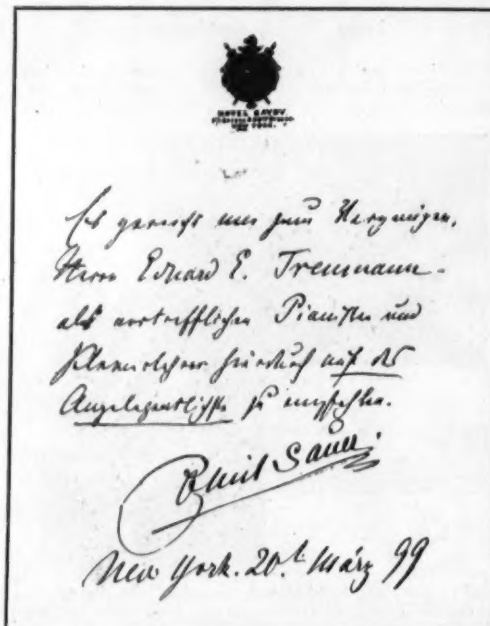 HOTEL SAVOY
NEW YORK.
Es gereicht mir zum Vergnügen,
Herrn Eduard E. Treumann
als vortrefflichen Pianisten und
Klavierlehrer hierdurch auf das
Angelegentlichste zu empfehlen.
Emil Sauer.
New York. 20t März 99